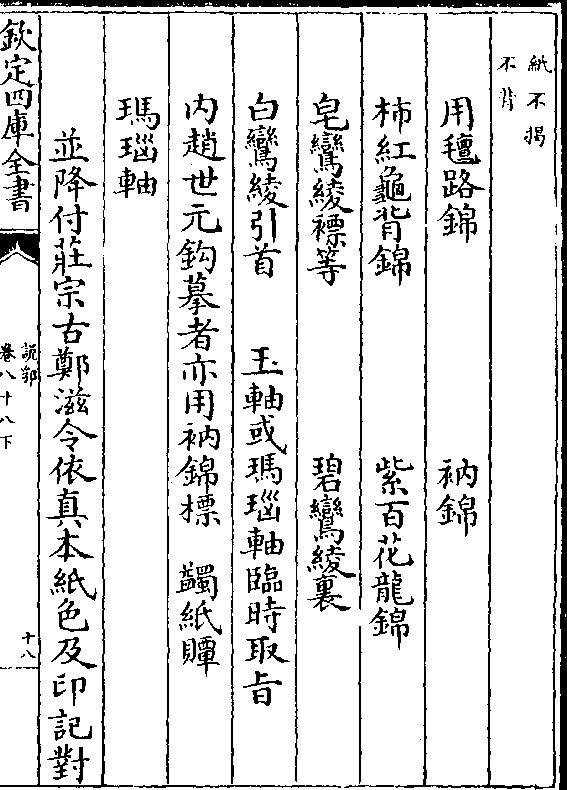 紙不揭
不背
用氊路錦 衲錦
柿紅龜背錦 紫百花龍錦
皂鸞綾褾等 碧鸞綾裏
白鸞綾引首 玉軸或瑪瑙軸臨時取旨
内趙世元鈎摹者亦用衲錦標 蠲紙贉
瑪瑙軸
並降付莊宗古鄭滋令依真本紙色及印記對
欽定四庫全書
說郛
卷八十八下
十八